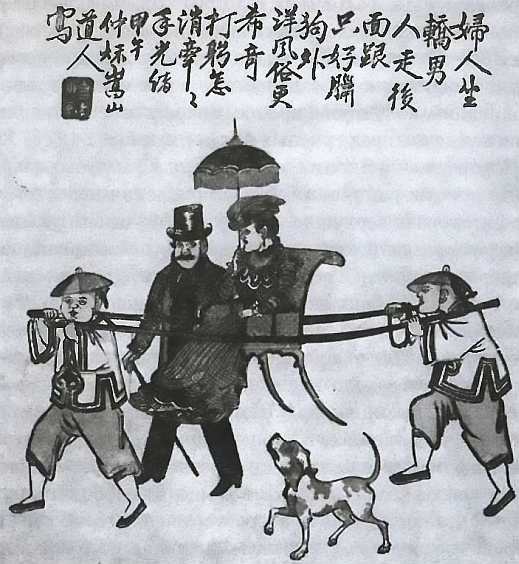 婦人坐
轎男
人走後
面跟
只好
狗外
洋風俗更
希奇
打躬怎
消牽〻
手光緒
甲午
仲秌嵩山
道人
寫